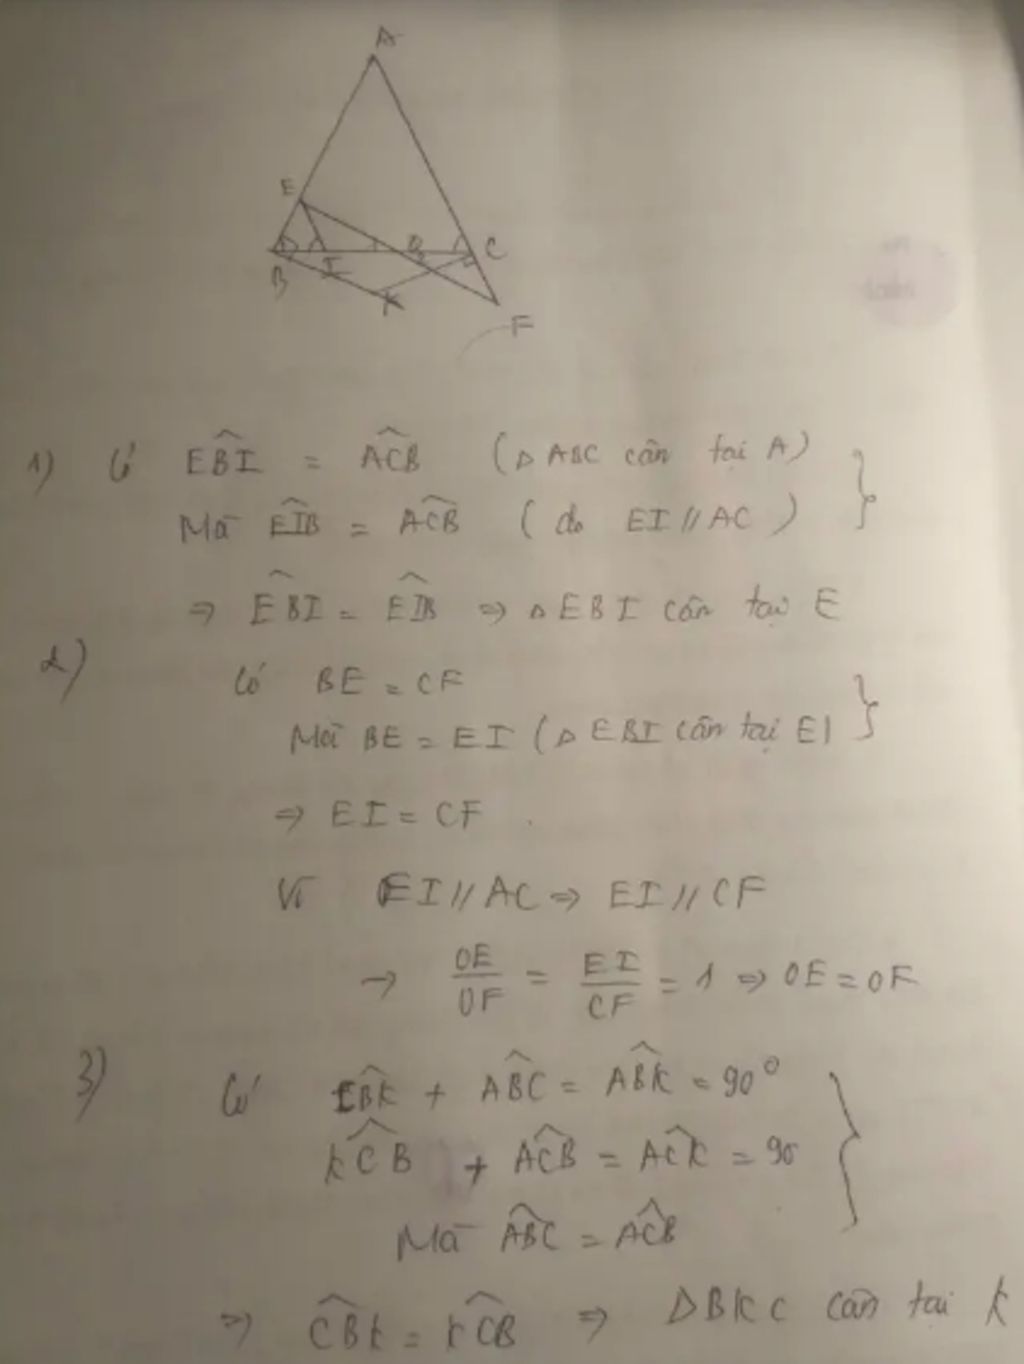 A
E
B I O C
K
F
1) Có EBI = ACB (△ ABC cân tại A)
Mà EIB = ACB (do EI // AC)
⇒ EBI = EIB ⇒ △ EBI cân tại E
2)
Có BE = CF
Mà BE = EI (△ EBI cân tại E)
⇒ EI = CF
Vì EI // AC ⇒ EI // CF
→ OE/OF = EI/CF = 1 ⇒ OE = OF
3) Có IBK + ABC = ABK = 90°
KCB + ACB = ACK = 90
Mà ABC = ACB
⇒ CBK = KCB ⇒ △BKC cân tại K